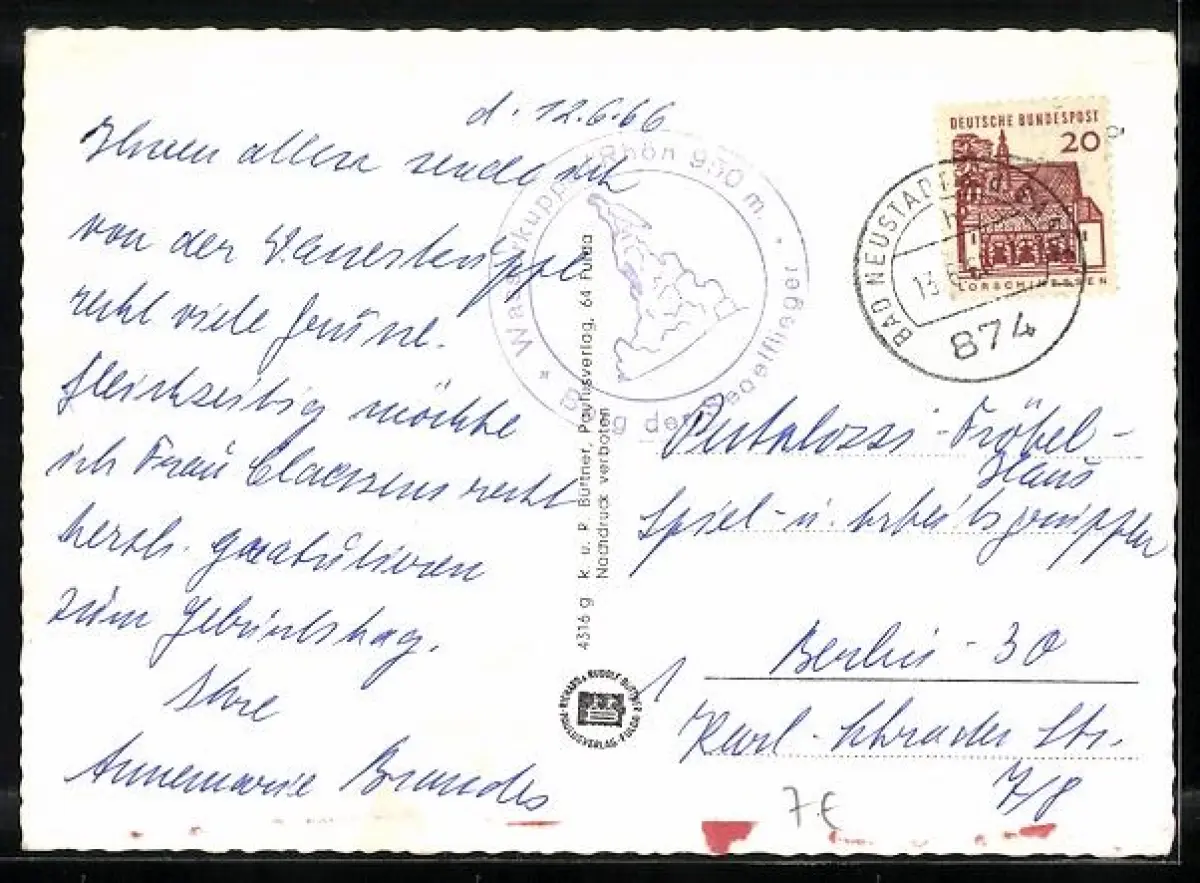 d. 12.6.66
Ihnen allen sende ich
von der Wasserkuppe
recht viele Grüße.
Gleichzeitig möchte
ich Frau Claessens recht
herzl. gratulieren
zum Geburtstag.
Ihre
Annemarie Brandes
* Wasserkuppe Rhön 950 m. *
Berg der Segelflieger
4316 g k. u. R. Büttner, Payhusverlag, 64 Fulda
Nachdruck verboten
RICHARD & RUDOLF BÜTTNER
FULDA
DEUTSCHE BUNDESPOST
20
LORSCH/HESSEN
BAD NEUSTADT
13
874
Pestalozzi-Fröbel-
Haus
Spiel- u. Arbeitsgruppen
1 Berlin-30
Karl-Schrader Str.
7/8
7 €